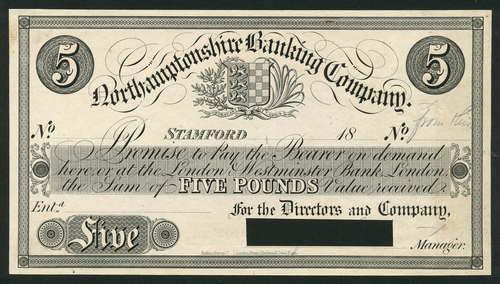 5 5
Northamptonshire Banking Company.
No STAMFORD 18 No
Promise to Pay the Bearer on demand
here or at the London & Westminster Bank, London,
the Sum of FIVE POUNDS Value received
Entd. For the Directors and Company,
Five
Manager.